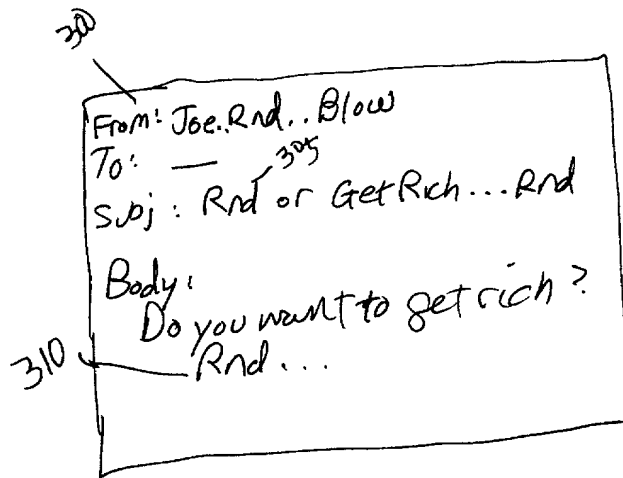 300
From: Joe..Rnd..Blow
To: —
305
Subj: Rnd or Get Rich...Rnd
Body:
Do you want to get rich?
310
Rnd...